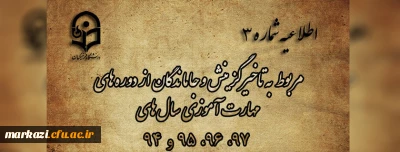 اطلاعیه شماره ۳
مربوط به تاخیر گزینش و جاماندگان از دوره های
مهارت آموزی سال های
۹۷، ۹۶، ۹۵ و ۹۴
markazi.cfu.ac.ir